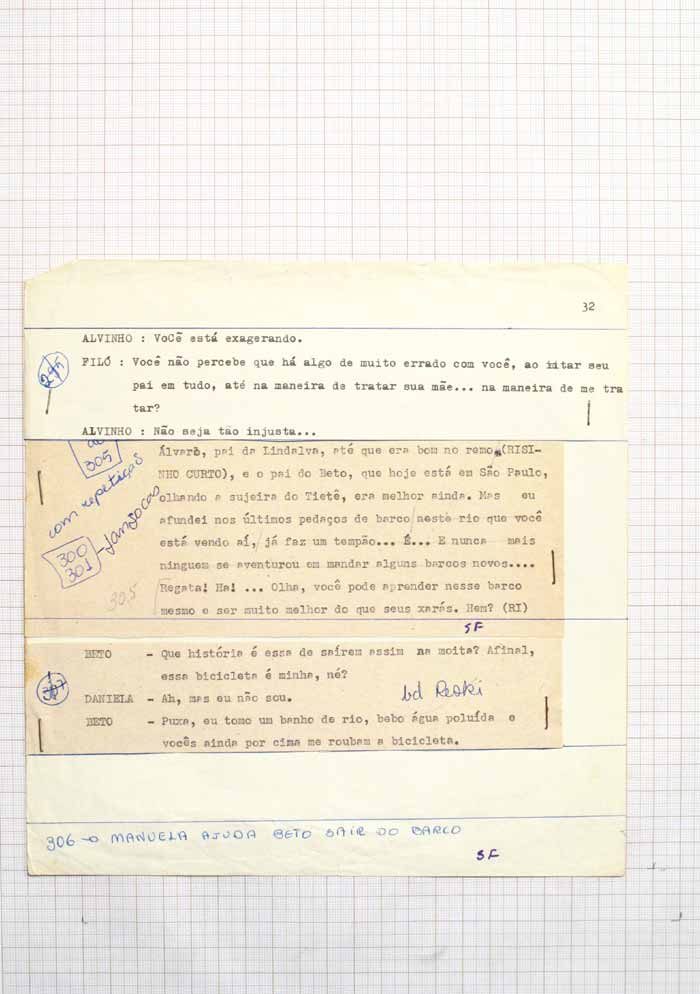 32
ALVINHO : VoCê está exagerando.
FILÓ : Você não percebe que há algo de muito errado com você, ao imitar seu
pai em tudo, até na maneira de tratar sua mãe... na maneira de me tra
tar?
ALVINHO : Não seja tão injusta...
305
com repetição
300
301
305
Álvaro, pai da Lindalva, até que era bom no remo (RISI-
NHO CURTO), e o pai do Beto, que hoje está em São Paulo,
olhando a sujeira do Tietê, era melhor ainda. Mas eu
afundei nos últimos pedaços de barco neste rio que você
está vendo aí, já faz um tempão... É... E nunca mais
ninguem se aventurou em mandar alguns barcos novos....
Regata! Ha! ... Olha, você pode aprender nesse barco
mesmo e ser muito melhor do que seus xarás. Hem? (RI)
SF
BETO - Que história é essa de saírem assim na moita? Afinal,
essa bicicleta é minha, né?
DANIELA - Ah, mas eu não sou.
BETO - Puxa, eu tomo um banho de rio, bebo água poluída e
vocês ainda por cima me roubam a bicicleta.
306 → MANUELA AJUDA BETO SAIR DO BARCO
SF